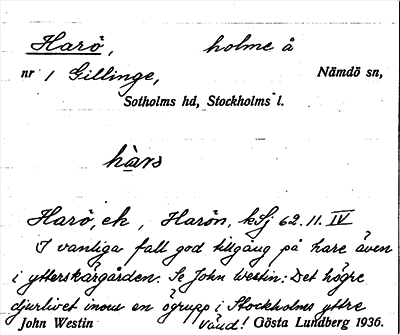 Harö, holme å
nr 1 Gillinge, Nämdö sn,
Sotholms hd, Stockholms l.
hàrs
Harö, ek, Harön, kSj 62.11. IV
I vanliga fall god tillgång på hare även
i ytterskärgården. Se John Westin: Det högre
djurlivet inom en ögrupp i Stockholms yttre
John Westin Gösta Lundberg 1936.